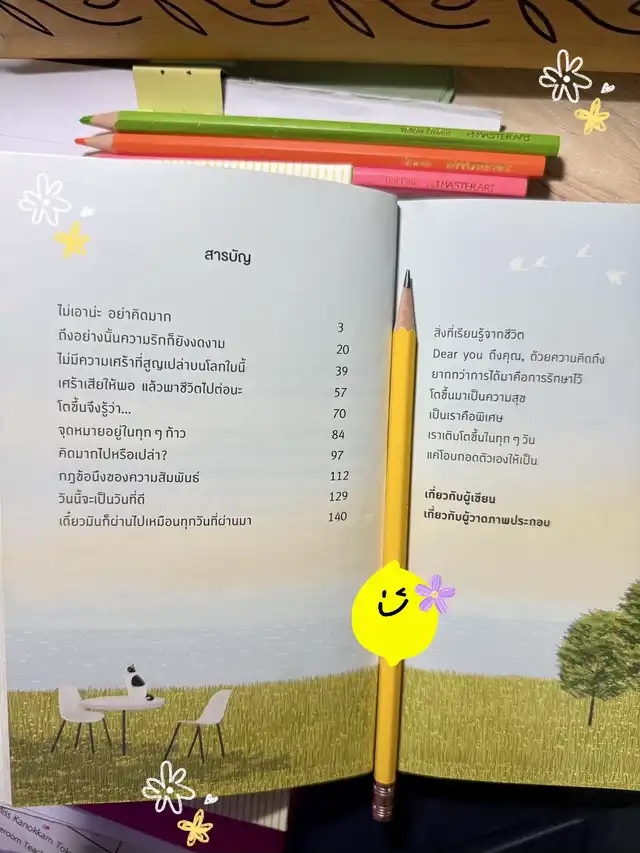 MASTERART
MASTERART
MASTERART
สารบัญ
ไม่เอาน่ะ อย่าคิดมาก 3
ถึงอย่างนั้นความรักก็ยังงดงาม 20
ไม่มีความเศร้าที่สูญเปล่าบนโลกใบนี้ 39
เศร้าเสียให้พอ แล้วพาชีวิตไปต่อนะ 57
โตขึ้นจึงรู้ว่า... 70
จุดหมายอยู่ในทุก ๆ ก้าว 84
คิดมากไปหรือเปล่า? 97
กฎข้อนึงของความสัมพันธ์ 112
วันนี้จะเป็นวันที่ดี 129
เดี๋ยวมันก็ผ่านไปเหมือนทุกวันที่ผ่านมา 140
สิ่งที่เรียนรู้จากชีวิต
Dear you ถึงคุณ, ด้วยความคิดถึง
ยากกว่าการได้มาคือการรักษาไว้
โตขึ้นมาเป็นความสุข
เป็นเราคือพิเศษ
เราเติบโตขึ้นในทุก ๆ วัน
แค่โอบกอดตัวเองให้เป็น
เกี่ยวกับผู้เขียน
เกี่ยวกับผู้วาดภาพประกอบ
Kanokkarn